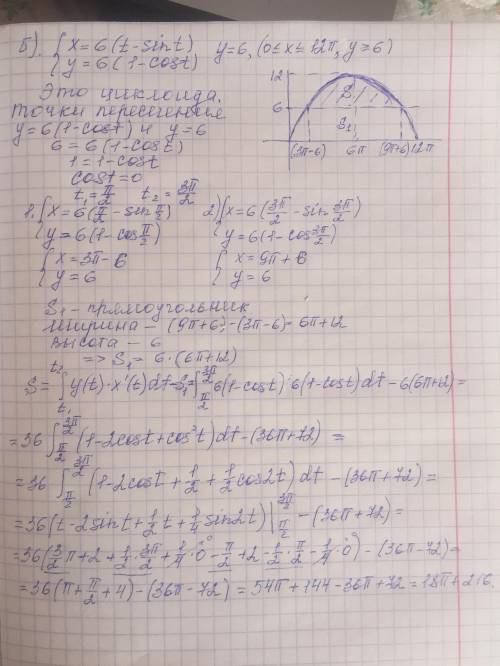 б). { x = 6(t - sin t)   y = 6, (0 ≤ x ≤ 12π, y ≥ 6)
{ y = 6(1 - cos t)
Это циклоида.
точки пересечения
y = 6(1 - cos t) и y = 6
6 = 6(1 - cos t)
1 = 1 - cos t
cos t = 0
t₁ = π/2   t₂ = 3π/2
12
6
S
S₁
(3π-6)   6π   (9π+6) 12π
1. { x = 6(π/2 - sin π/2)   2) { x = 6(3π/2 - sin 3π/2)
{ y = 6(1 - cos π/2)   { y = 6(1 - cos 3π/2)
{ x = 3π - 6   { x = 9π + 6
{ y = 6   { y = 6
S₁ - прямоугольник
ширина - (9π+6) - (3π-6) = 6π+12
высота - 6
=> S₁ = 6·(6π+12)
S = ∫_{t₁}^{t₂} y(t)·x'(t)dt - S₁ = ∫_{π/2}^{3π/2} 6(1-cost)·6(1-cost)dt - 6(6π+12) =
= 36 ∫_{π/2}^{3π/2} (1 - 2cost + cos²t)dt - (36π+72) =
= 36 ∫_{π/2}^{3π/2} (1 - 2cost + 1/2 + 1/2 cos2t)dt - (36π+72) =
= 36(t - 2sint + 1/2 t + 1/4 sin2t)|_{π/2}^{3π/2} - (36π+72) =
= 36(3/2 π + 2 + 1/2 · 3π/2 + 1/4 · 0 - π/2 + 2 - 1/2 · π/2 - 1/4 · 0) - (36π-72) =
= 36(π + π/2 + 4) - (36π-72) = 54π + 144 - 36π + 72 = 18π + 216.